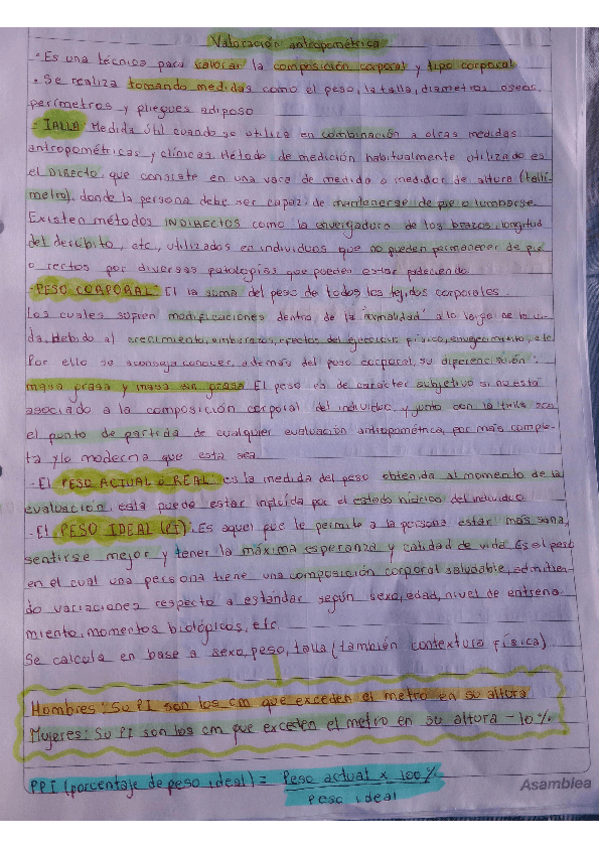 Valoración antropométrica
· Es una técnica para valorar la composición corporal y tipo corporal
· Se realiza tomando medidas como el peso, la talla, diametros oseos,
perímetros y pliegues adiposo
- TALLA: Medida útil cuando se utiliza en combinación a otras medidas
antropométricas y clínicas. Método de medición habitualmente utilizado es
el DIRECTO, que consiste en una vara de medida o medidor de altura (tallí-
metro), donde la persona debe ser capaz de mantenerse de pie o tumbarse.
Existen métodos INDIRECTOS como la envergadura de los brazos, longitud
del decúbito, etc., utilizados en individuos que no pueden permanecer de pie
o rectos por diversas patologías que pueden estar padeciendo.
- PESO CORPORAL: El la suma del peso de todos los tejidos corporales.
Los cuales sufren modificaciones dentro de la "normalidad" a lo largo de la vi-
da, debido al crecimiento, embarazos, efectos del ejercicio físico, envejecimiento, etc.
Por ello se aconseja conocer, además del peso corporal, su diferenciación:
masa grasa y masa sin grasa El peso es de carácter subjetivo si no está
asociado a la composición corporal del individuo, y junto con la talla son
el punto de partida de cualquier evaluación antropométrica, por más comple-
ta y/o moderna que esta sea.
- El PESO ACTUAL o REAL: es la medida del peso obtenida al momento de la
evaluación. esta puede estar influida por el estado hídrico del individuo.
- El PESO IDEAL (PI): Es aquel que le permite a la persona estar más sana,
sentirse mejor y tener la máxima esperanza y calidad de vida. Es el peso
en el cual una persona tiene una composición corporal saludable, admitien-
do variaciones respecto a estándar según sexo, edad, nivel de entrena
miento, momentos biológicos, etc.
Se calcula en base a sexo, peso, talla (también contextura física)
Hombres: Su PI son los cm que exceden el metro en su altura
Mujeres: Su PI son los cm que exceden el metro en su altura - 10%
PPI (porcentaje de peso ideal) = Peso actual x 100%
Peso ideal
Asamblea